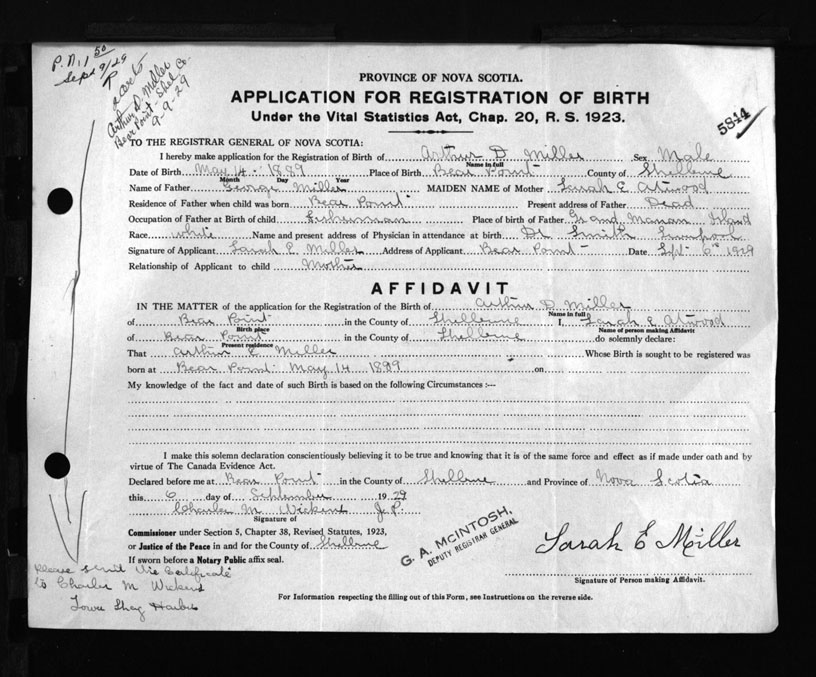 P.N. 1 50
Sept 9/29
Arthur D. Miller
Bear Point Shel Co.
9-9-29
PROVINCE OF NOVA SCOTIA.
APPLICATION FOR REGISTRATION OF BIRTH
Under the Vital Statistics Act, Chap. 20, R. S. 1923.
5844
TO THE REGISTRAR GENERAL OF NOVA SCOTIA:
I hereby make application for the Registration of Birth of Arthur D Miller Sex Male
Name in full
Date of Birth May 14 - 1889 Place of Birth Bear Point County of Shelburne
Month Day Year
Name of Father George Miller MAIDEN NAME of Mother Sarah E Atwood
Residence of Father when child was born Bear Point Present address of Father Dead
Occupation of Father at Birth of child Fisherman Place of birth of Father Grand Manan Island
Race white Name and present address of Physician in attendance at birth Dr Smith Liverpool
Signature of Applicant Sarah E Miller Address of Applicant Bear Point Date Spt 6th 1929
Relationship of Applicant to child Mother
AFFIDAVIT
IN THE MATTER of the application for the Registration of the Birth of Arthur D Miller
Name in full
of Bear Point in the County of Shelburne I, Sarah E Atwood
Birth place Name of person making Affidavit
of Bear Point in the County of Shelburne do solemnly declare:
Present residence
That Arthur E Miller Whose Birth is sought to be registered was
born at Bear Point May 14 1889 on
My knowledge of the fact and date of such Birth is based on the following Circumstances :—
I make this solemn declaration conscientiously believing it to be true and knowing that it is of the same force and effect as if made under oath and by
virtue of The Canada Evidence Act.
Declared before me at Bear Point in the County of Shelburne and Province of Nova Scotia
this 6 day of September 1929
Charles M Wickens J.P.
Signature of
Commissioner under Section 5, Chapter 38, Revised Statutes, 1923,
or Justice of the Peace in and for the County of Shelburne
If sworn before a Notary Public affix seal.
G. A. McINTOSH,
DEPUTY REGISTRAR GENERAL
Sarah E Miller
Signature of Person making Affidavit.
please send the certificate
to Charles M Wickens
Harbor
For Information respecting the filling out of this Form, see Instructions on the reverse side.